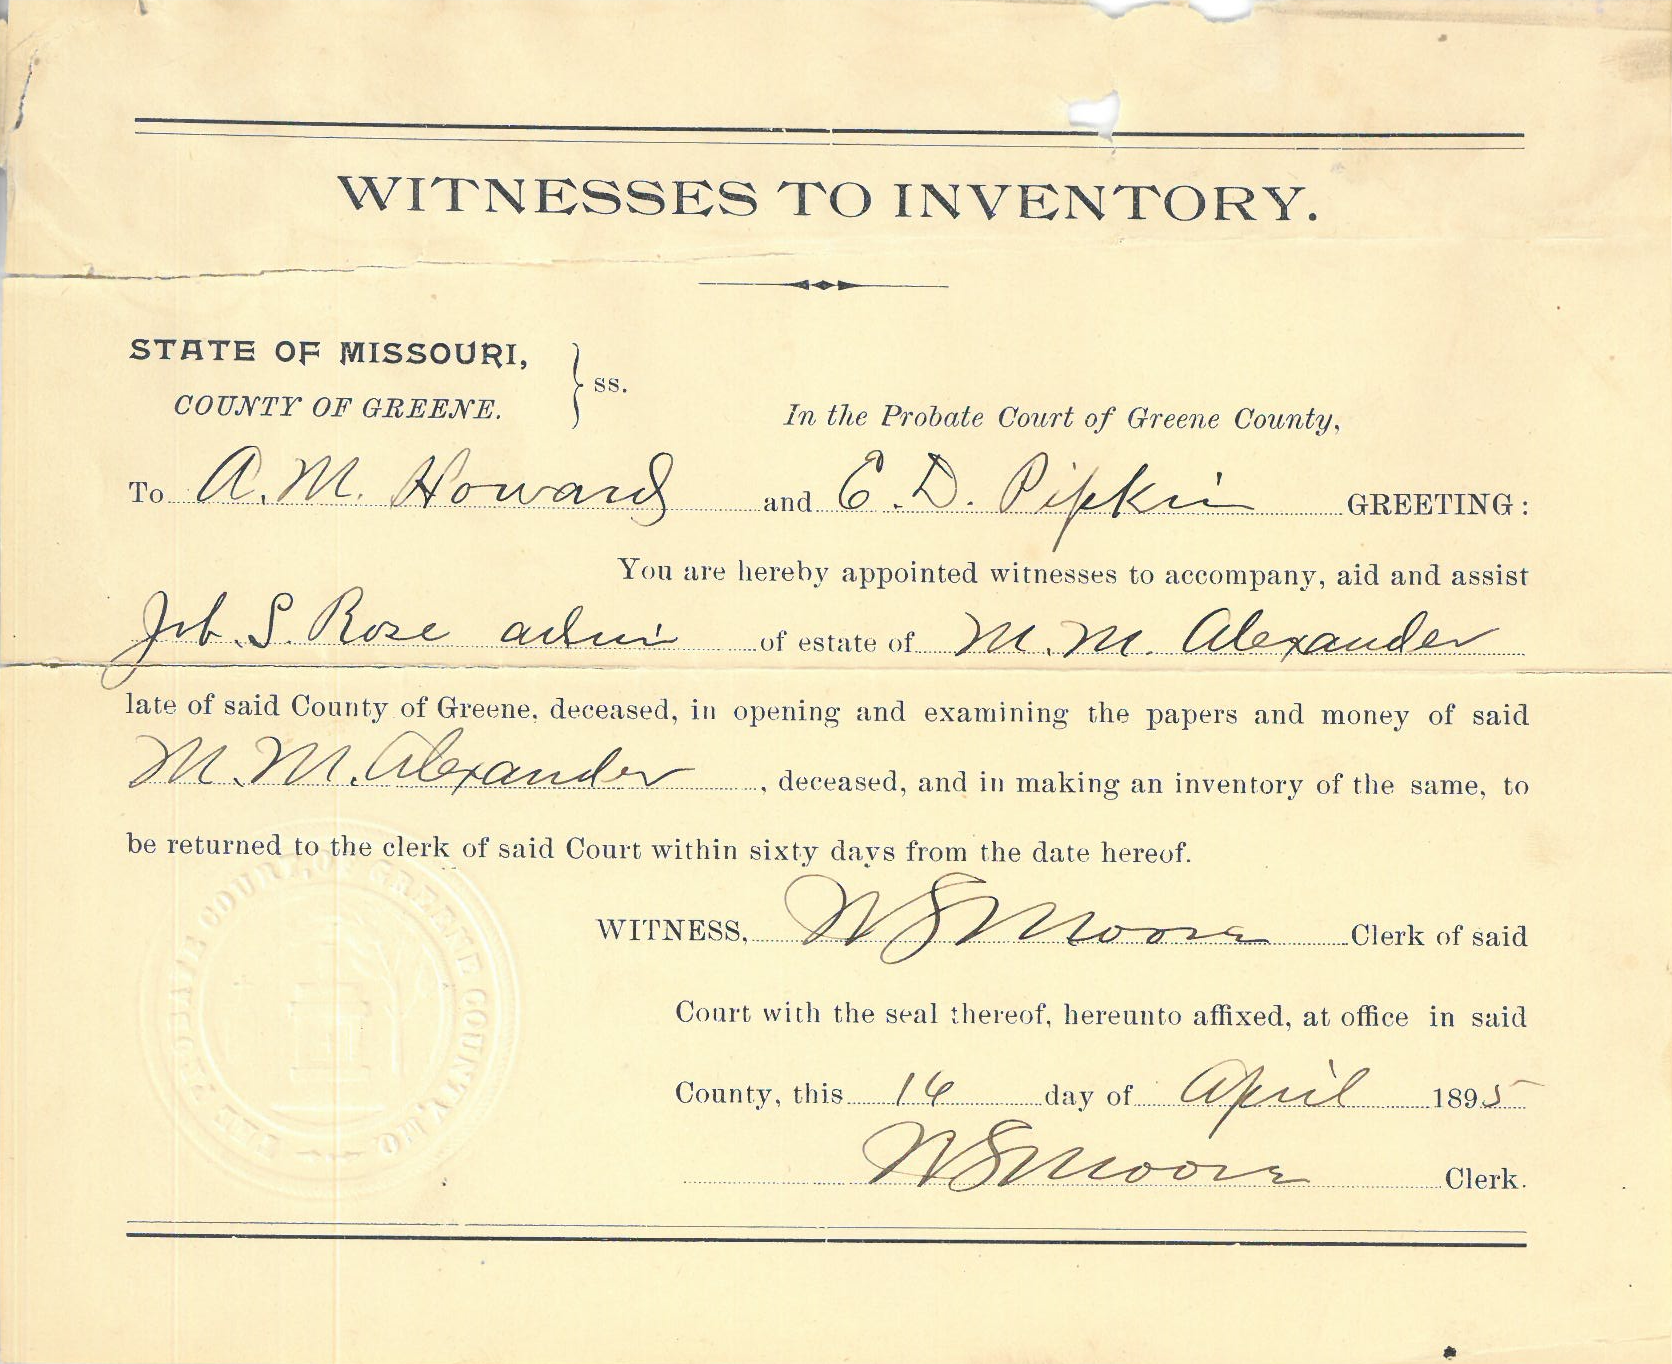 WITNESSES TO INVENTORY.
STATE OF MISSOURI,
COUNTY OF GREENE.
} ss.
In the Probate Court of Greene County,
To A. M. Howard and E. D. Pipkin GREETING:
You are hereby appointed witnesses to accompany, aid and assist
S. Rose admr of estate of M. M. Alexander
late of said County of Greene, deceased, in opening and examining the papers and money of said
M. M. Alexander, deceased, and in making an inventory of the same, to
be returned to the clerk of said Court within sixty days from the date hereof.
WITNESS, W S Moore Clerk of said
Court with the seal thereof, hereunto affixed, at office in said
County, this 16 day of April 1895
W S Moore Clerk.
THE PROBATE COURT, OF GREENE COUNTY, MO